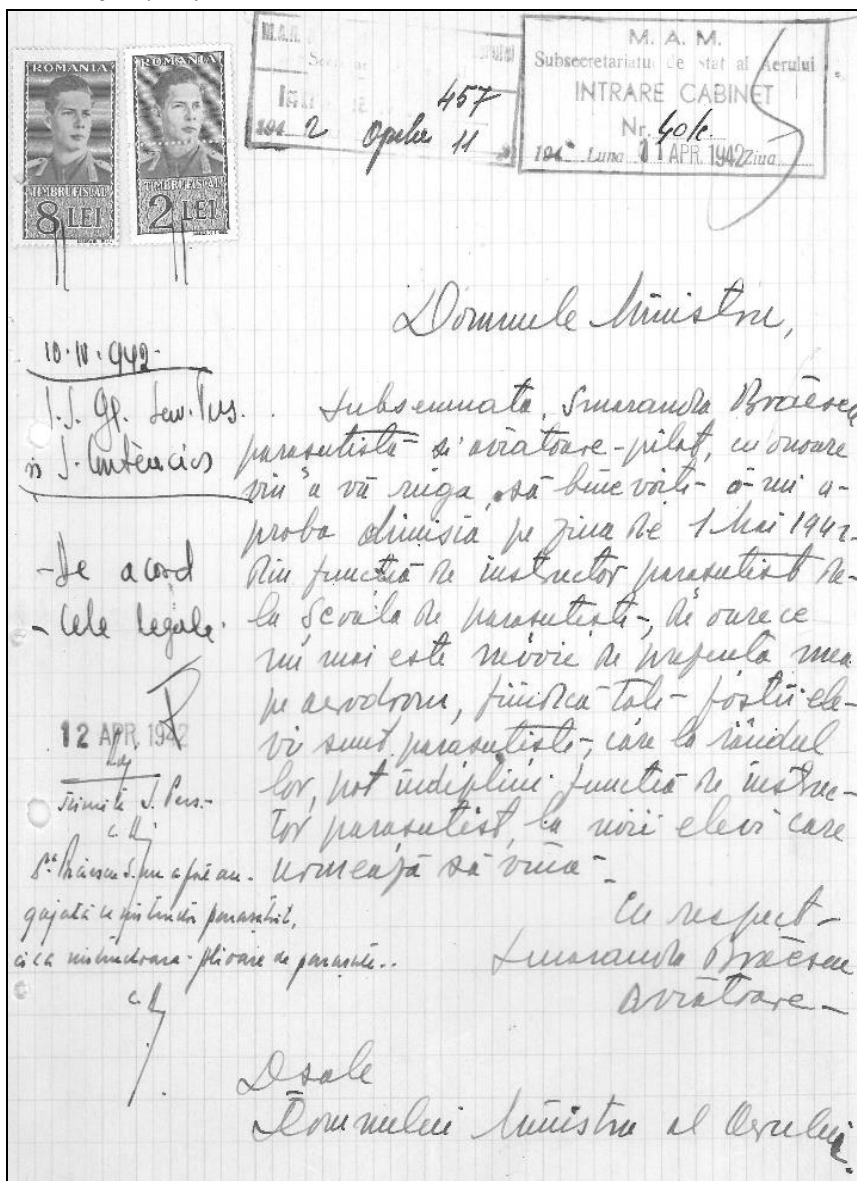 ROMANIA
TIMBRU FISCAL
8 LEI
ROMANIA
TIMBRU FISCAL
2 LEI
457
2 Aprilie 11
M. A. M.
Subsecretariatul de stat al Aerului
INTRARE CABINET
Nr. 40/c.
194 Luna 11 APR. 1942 Ziua
Domnule Ministru,
Subsemnata, Smaranda Brăescu
parasutistă si aviatoare-pilot, cu onoare
vin a vă ruga, să binevoiti a-mi a-
proba dimisia pe ziua de 1 Mai 1942
din functia de instructor parasutist de
la Scoala de parasutisti, de oarece
nu mai este nevoie de prezenta mea
pe aerodrom, fiindcă toti fostii ele-
vi sunt parasutisti, care la rândul
lor, pot indeplini functia de instruc-
tor parasutist, la noii elevi care
urmează să vină
Cu respect
Smaranda Brăescu
aviatoare
Dsale
Domnului Ministru al Aerului
10.IV.942
- De acord
- Cele legale.
12 APR. 1942
Trimite S. Pers.